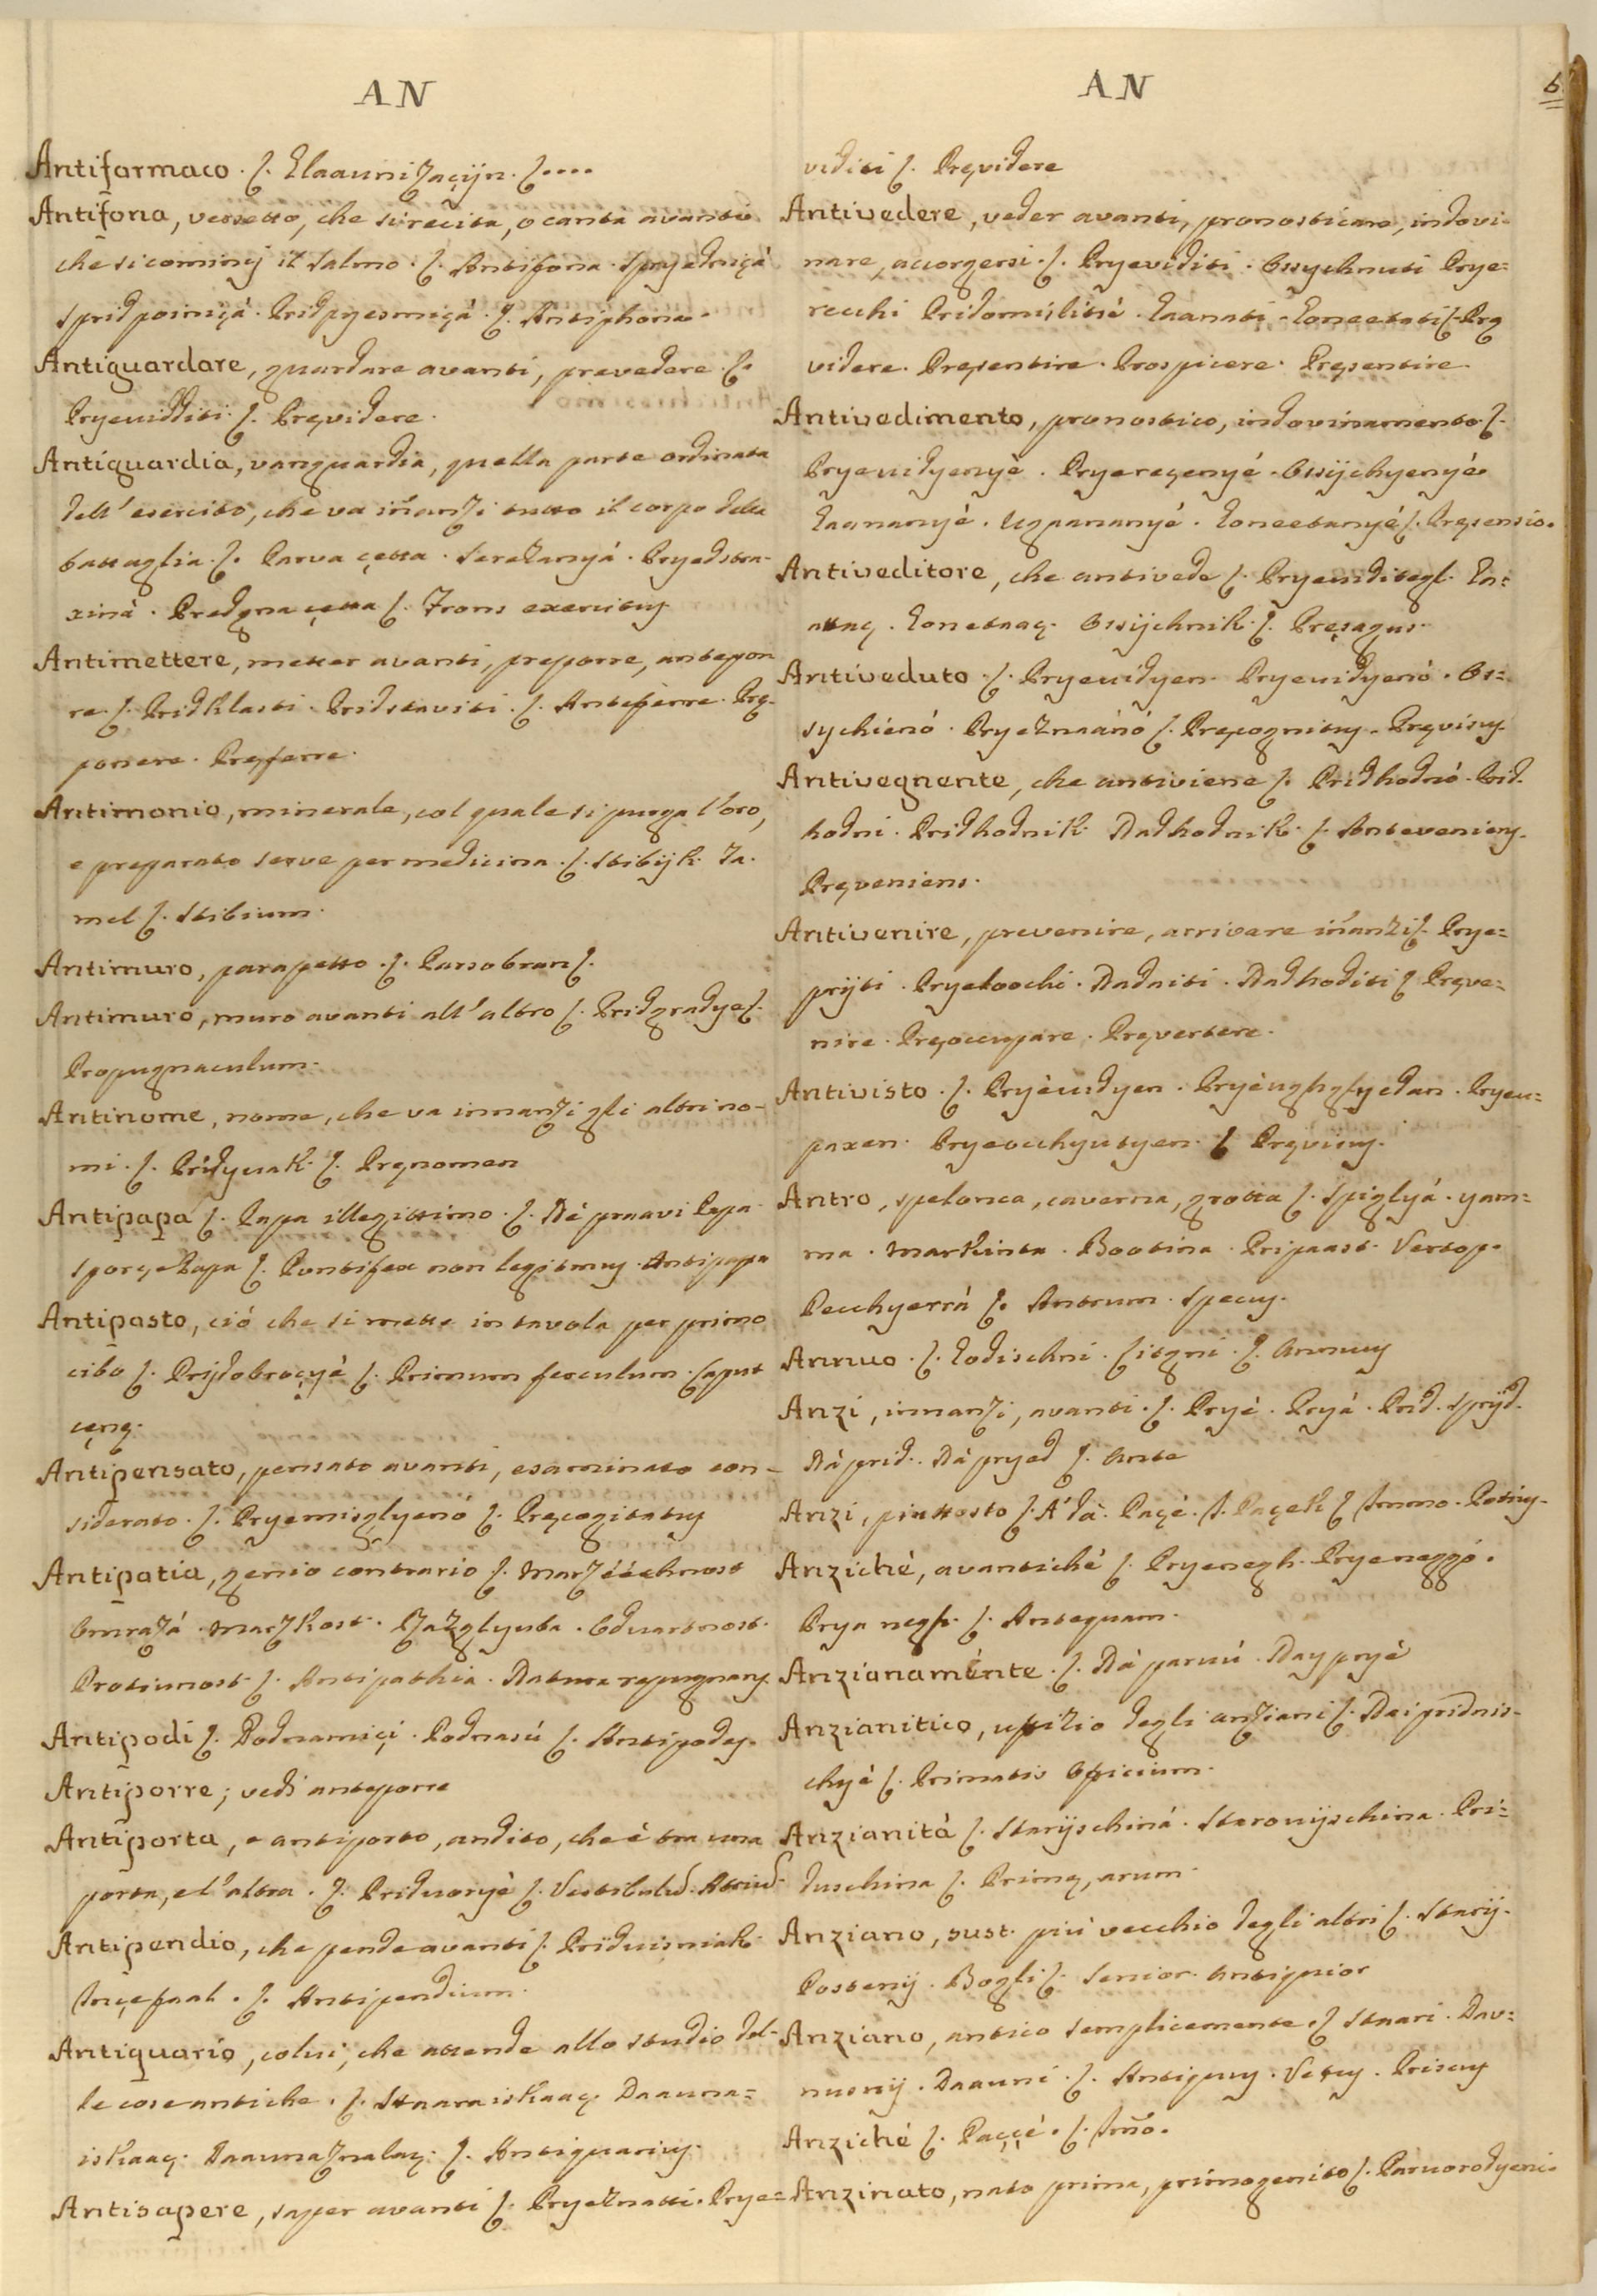 AN
Antifarmaco. ſ. Elaaunizaçijn. ſ....
Antifona, versetto, che si recita, o canta avanti
che si cominij il Salmo. ſ. Antifona. Spryedniçà
Spridpoiniçà. Pridpyesmiçà. ſ. Antiphona.
Antiguardare, guardare avanti, prevedere. ſ.
Pryeuidditi. ſ. Pręvidere.
Antiguardia, vanguardia, quella parte ordinata
dell' esercito, che va iñanzi tutto il corpo della
battaglia. ſ. Parva çetta. Seraxanyá. Pryedstra-
xinà. Predgna çetta ſ. Frons exercitus
Antimettere, metter avanti, preporre, antepor
re. ſ. Pridklasti. Pridstaviti. ſ. Anteferre. Prę-
ponere. Pręferre.
Antimonio, minerale, col quale si purga l'oro,
e preparato serve per medicina. ſ. Stibijk. Ja-
mel ſ. Stibium.
Antimuro, parapetto. ſ. Parsobran ſ.
Antimuro, muro avanti all' altro ſ. Pridgradye ſ.
Propugnaculum.
Antinome, nome, che va innanzi gli altri no-
mi. ſ. Pridyuak. ſ. Pręnomen
Antipapa ſ. Papa illegittimo. ſ. Né praavi Papa
Sporçe Papa ſ. Pontifex non legitimus. Antipapa
Antipasto, ció che si mette in tavola per primo
cibo ſ. Prijdobroçyè ſ. Primum ferculum. Caput
cęnę.
Antipensato, pensato avanti, esaminato con-
siderato. ſ. Pryemisglyenó ſ. Pręcogitatus
Antipatia, genio contrario ſ. Marzééchnost
Omrazá. Marzkost. Razglyuba. Oduartnost.
Protiunost ſ. Antipathia. Natura repugnans.
Antipodi ſ. Podnamiçi. Podnasú ſ. Antipodes.
Antiporre; vedi anteporre
Antiporta, e antiporto, andito, che è tra una
porta, e l'altra. ſ. Priduoryè ſ. Vestibulū. Atriū.
Antipendio, che pende avanti ſ. Priduisniak.
Inçefaal. ſ. Antipendium.
Antiquario, colui, che attende allo studio del-
le cose antiche. ſ. Staaraiskaaç. Daauna=
iskaaç. Daaunaznalaç. ſ. Antiquarius.
Antisapere, saper avanti ſ. Pryeznatti. Prye=
AN
6
viditi ſ. Pręvidere
Antivedere, veder avanti, pronosticare, indovi-
nare, accorgersi. ſ. Pryeviditi. Ossychnuti Prye=
recchi Pridomislitsè. Gaanati. Gonectati ſ. Prę
videre. Pręsentire. Prospicere. Pręsentire.
Antivedimento, pronostico, indovinamento ſ.
Pryeuidyenyè. Pryereçenyé. Ossijchyenyé.
Gaananyé. Ugpananyé. Gonectanyé ſ. Pręsensio.
Antiveditore, che antivede ſ. Pryeuditegl. Ga=
ataç. Gonetaaç. Ossijchnik. ſ. Pręsagus.
Antiveduto. ſ. Pryeuidyen. Pryeuidyenó. Os=
sychiénó. Pryeznaánó ſ. Pręcognitus. Pręvisus.
Antivegnente, che antiviene ſ. Pridhodnó. Prid-
hodni. Pridhodnik. Nadhodnik. ſ. Anteveniens.
Pręveniens.
Antivenire, prevenire, arrivare iñanzi ſ. Prye=
prijti. Pryetoochi. Nadaiti. Nadhoditi ſ Pręve=
nire. Pręoccupare. Pręvertere.
Antivisto. ſ. Pryèuidyen. Pryèughglyedan. Pryeu=
paxen. Pryeocchyutyen. ſ Pręvisus.
Antro, spelonca, caverna, grotta ſ. Spiglyá. yam=
ma. Markinta. Bootina. Pripaast. Vertop.
Pecchyerrá ſ. Antrum. Specus.
Annuo. ſ. Godischni. Litgni. ſ. Annuus
Anzi, innanzi, avanti. ſ. Pryé. Pryá. Prid. Sprijd.
Náprid. Nápryed ſ. Ante
Anzi, piuttosto ſ. A' dà. Paçé. ſ. Paçek ſ Immo. Potius.
Anziché, avantiché ſ. Pryenegh. Pryeneggó.
Prya negh. ſ. Antequam.
Anzianaménte. ſ. Ná paruú. Nayprye
Anzianitico, uffizio degli anziani ſ. Naipridnis-
chyé ſ. Primatis Officium.
Anzianità ſ. Starijschiná. Starouijschina. Pri=
duschina ſ. Primę, arum.
Anziano, sust. più vecchio degli altri ſ. Starij.
Postenij. Bogli ſ. Senior. Antiquior
Anziano, antico semplicemente. ſ Staari. Dav=
nusnij. Daauni. ſ. Antiquus. Vetus. Priscus
Anziché ſ. Paççé. ſ. Im̃o.
Anzinato, nato prima, primogenito ſ. Paruorodyeni.